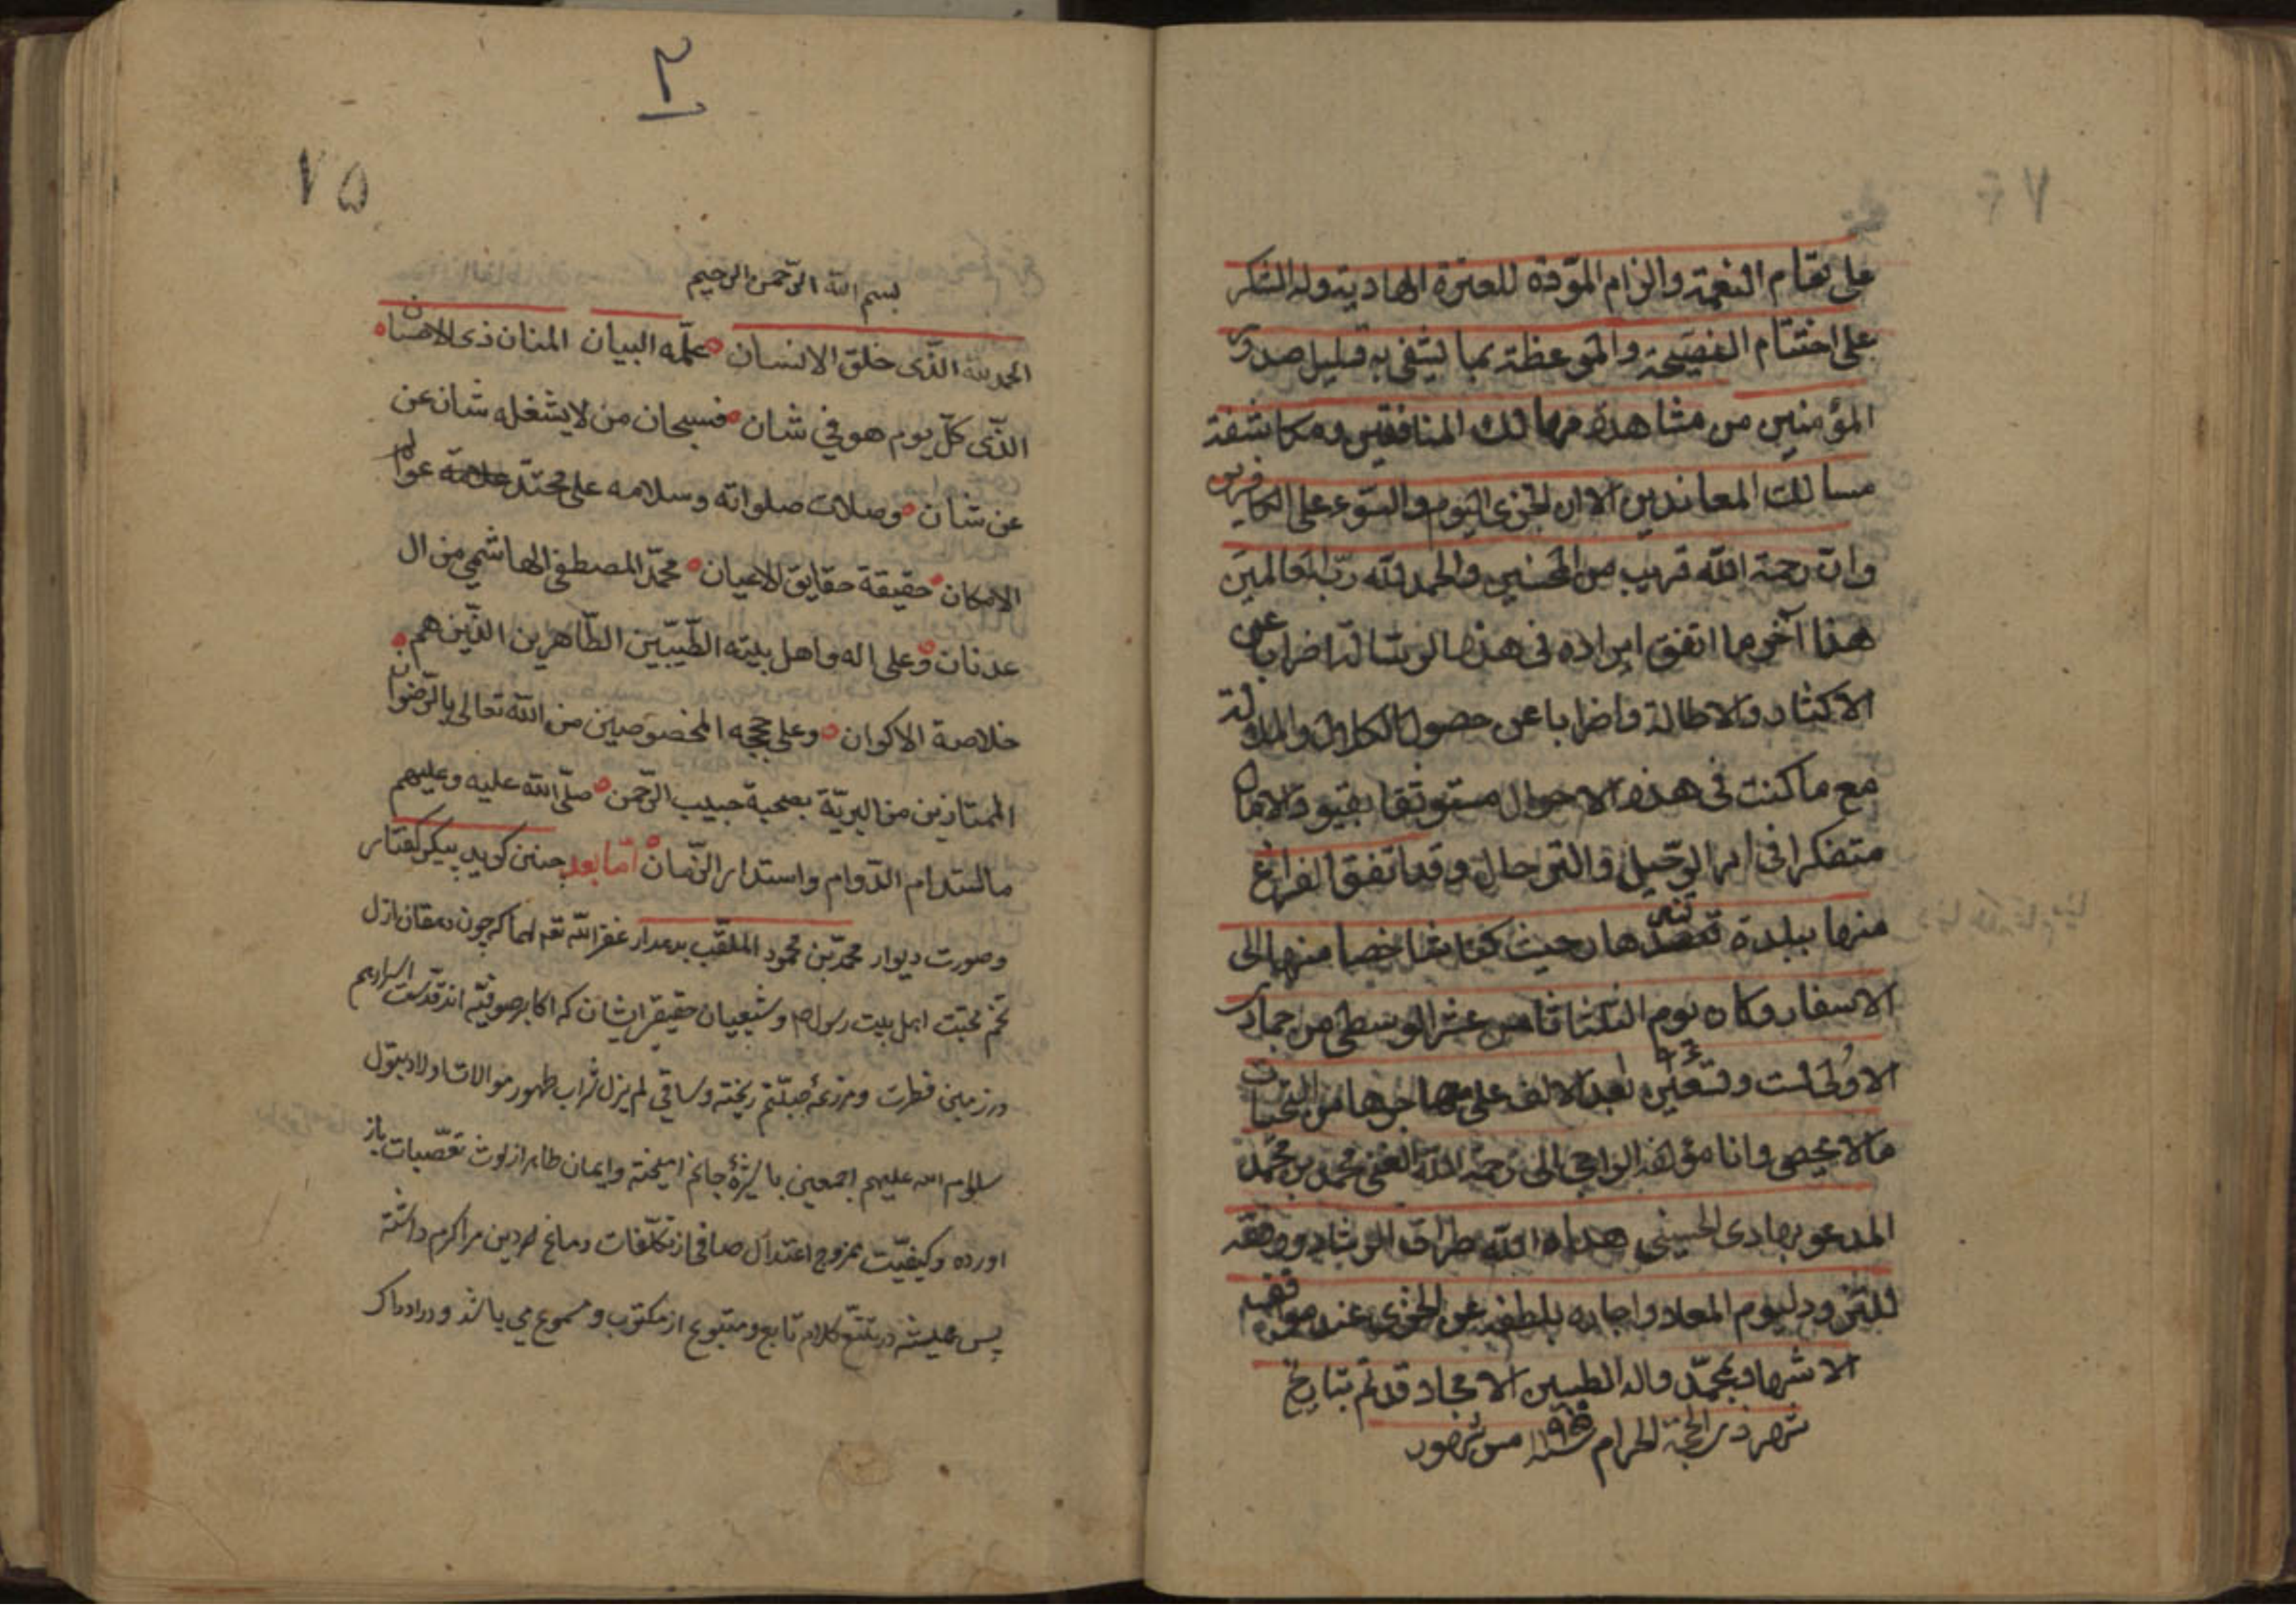 على تمام النعمة والزام المودة للعترة الهادية وله الشكر
على اختتام النصيحة والموعظة بما ليشفى به قليل صدور
المؤمنين من مشاهدة مهالك المنافقين ومكاشفة
مسالك المعاندين الا ان الخزى اليوم والسوء على الكافرين
وان رحمة الله قريب من المحسنين والحمد لله رب العالمين
هذا آخر ما اتفق ايراده فى هذه الرسالة اضرابا عن
الاكثار والاطالة واضرابا عن حصول الكلال والملالة
مع ما كنت فى هذه الاحوال مستوثقا بقيود الاقا
متفكرا فى امر الرحيل والترحال وقد اتفق الفراغ
منها ببلدة حيث كنا منها الى
الاسفار وكان يوم الثلثا ثامن عشر الوسطى من جمادى
الاولى ست وتسعين بعد الالف على مهاجرها من التحيات
مالا يحصى وانا مؤلفه الراجى الى رحمة الله الغنى محمد بن محمد
المدعو بهادى الحسينى هداه الله طرايق الرشاد ووفقه
للتزود ليوم المعاد واجاره بلطفه عن الخزى عند مواقفه
الاشهاد بمحمد واله الطيبين الامجاد قد تم بتاريخ
شهر ذى الحجة الحرام سنه ١١٩٥ من شهور
٣
٧٥
بسم الله الرّحمن الرحيم
الحمد لله الّذى خلق الانسان علّمه البيان المنان ذى الاحسان
الذّى كلّ يوم هو في شان فسبحان من لا يشغله شان عن
عن شان وصلات صلواته وسلامه على محتد علامة عوالم
الامكان حقيقة حقايق الاعيان محمّد المصطفى الهاشمي من ال
عدنان وعلى اله واهل بيته الطّيبّين الطّاهرين الذّين هم
خلاصة الاكوان وعلى حججه المخصوصين من الله تعالى بالرّضوان
الممتازين من البريّة بصحبة حبيب الرّحمن صلّى الله عليه وعليهم
ما استدام الدّوام واستدار الزّمان امّا بعد چنين كويد پيكر كفتار
وصورت ديوار محمّد بن محمود الملقّب بدهدار غفر الله تعه لهما كه چون دهقان ازل
تخم محبّت اهل بيت رسول ص وشيعيان حقيقى ايشان كه اكابر صوفيّه اند قدست اسرارهم
در زمين فطرت ومزرعه جبلّتم ريخته وساقي لم يزل شراب طهور موالات اولاد بتول
سلام الله عليهم اجمعين با شيره جانم اميخته وايمان طاهر از لوث تعصّبات باز
اورده وكيفيّت ممزوج اعتدال صافى از تكلّفات دماغ خردين مرا كرم داشته
پس هميشه در تتبّع كلام تابع ومتبوع از مكتوب ومسموع مي باشد ودر ادراك